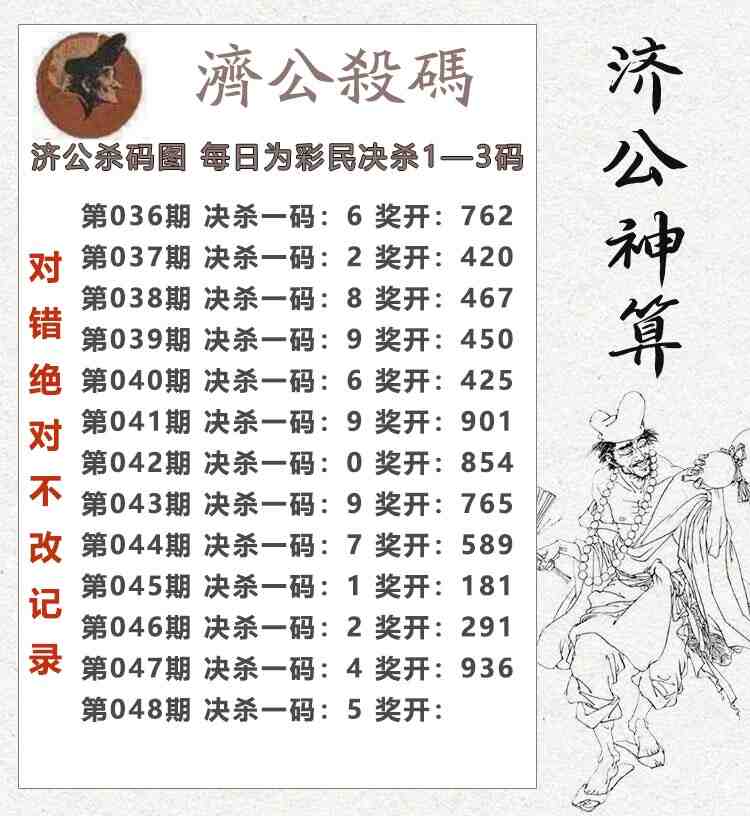 濟公殺碼
济公杀码图 每日为彩民决杀1—3码
第036期 决杀一码：6 奖开：762
第037期 决杀一码：2 奖开：420
第038期 决杀一码：8 奖开：467
第039期 决杀一码：9 奖开：450
第040期 决杀一码：6 奖开：425
第041期 决杀一码：9 奖开：901
第042期 决杀一码：0 奖开：854
第043期 决杀一码：9 奖开：765
第044期 决杀一码：7 奖开：589
第045期 决杀一码：1 奖开：181
第046期 决杀一码：2 奖开：291
第047期 决杀一码：4 奖开：936
第048期 决杀一码：5 奖开：
对错绝对不改记录
济公神算